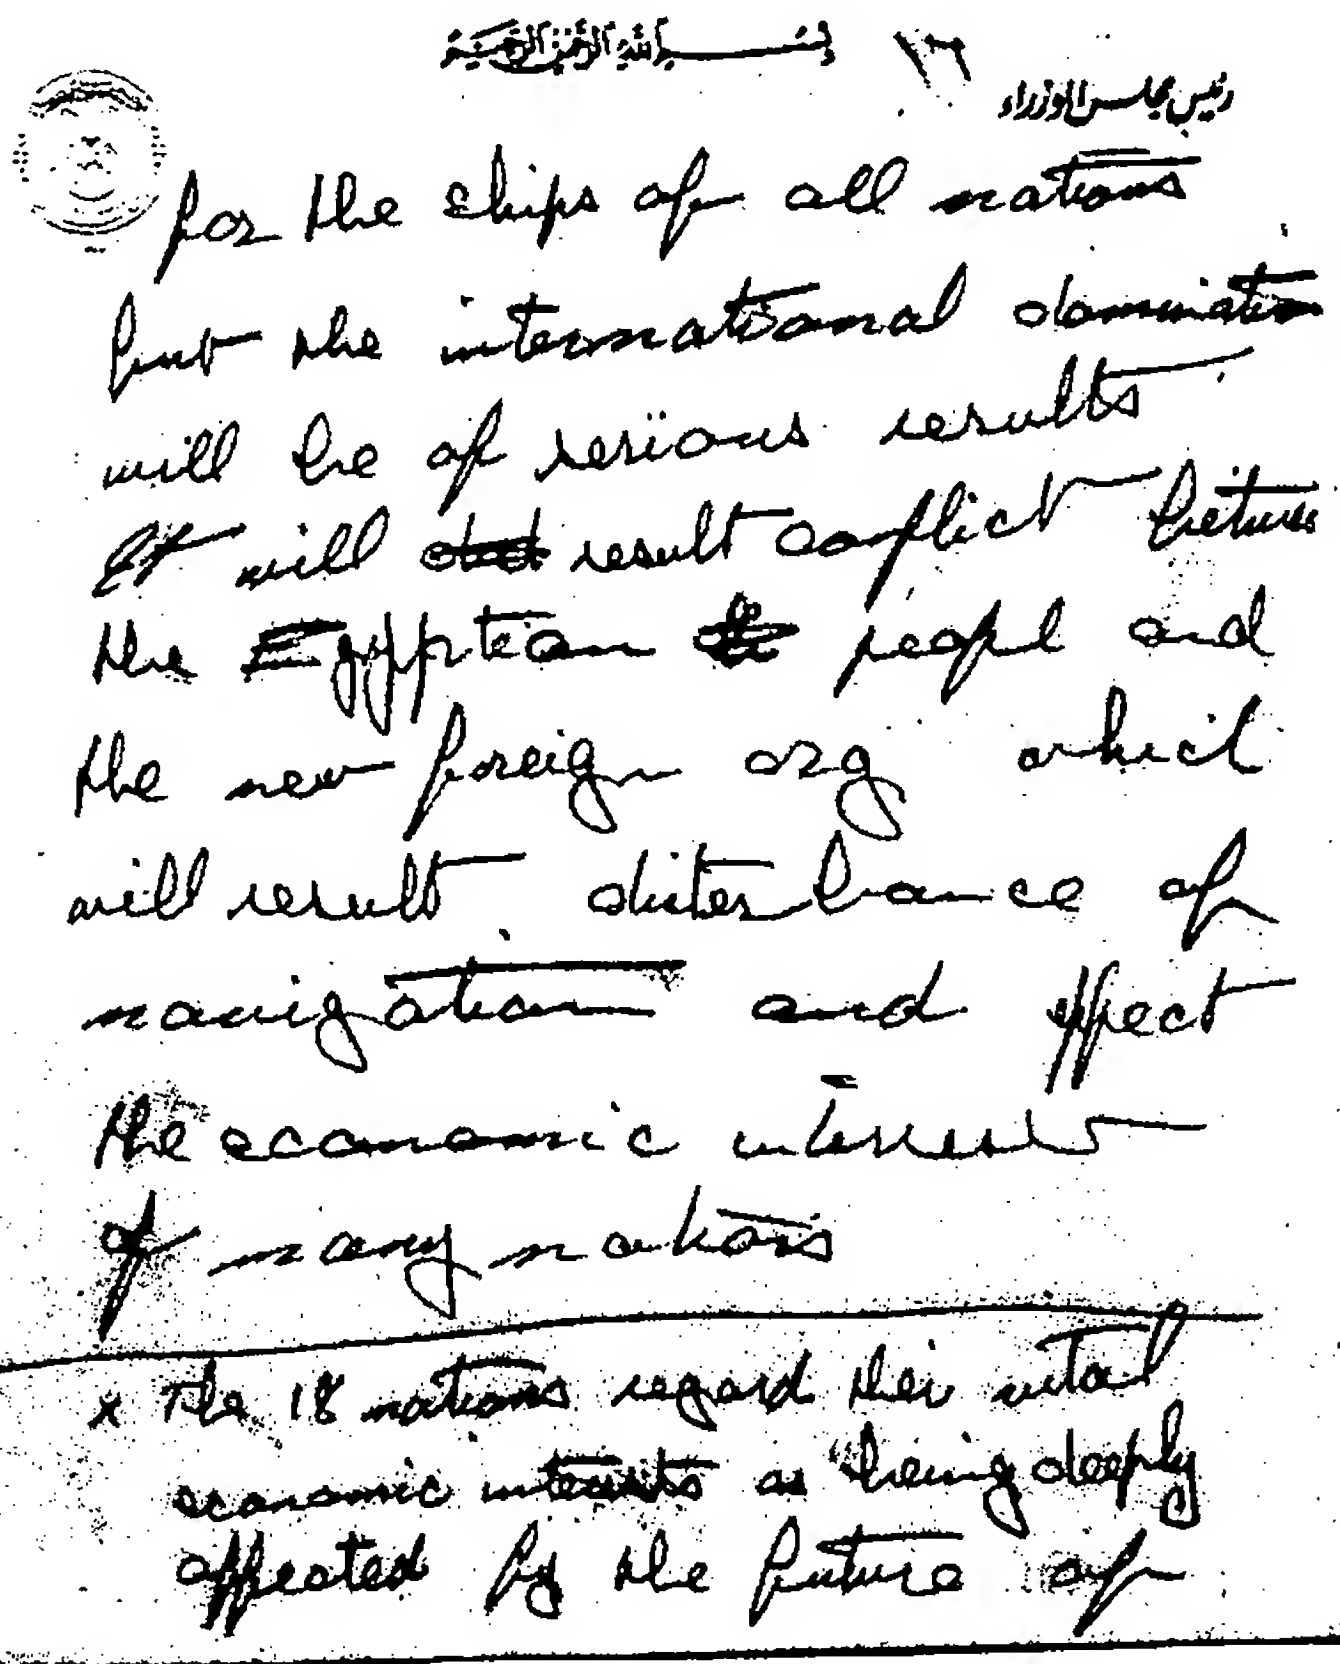 بسم الله الرحمن الرحيم
١٦
رئيس مجلس الوزراء
for the ships of all nations
but the international domination
will be of serious results
It will result conflict between
the Egyptian peopl and
the new foreign org which
will result disterbance of
navigation and effect
the economic interest
of many nations
x The 18 nations regard their vital
economic interests as "being deeply
affected by the future of